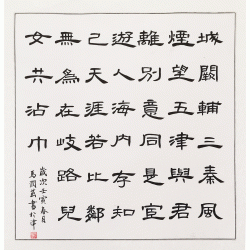 城闕輔三秦風
煙望五津與君
離別意同是宦
遊人海內存知
己天涯若比鄰
無為在岐路兒
女共沾巾
歲次壬寅春月
馬書於津